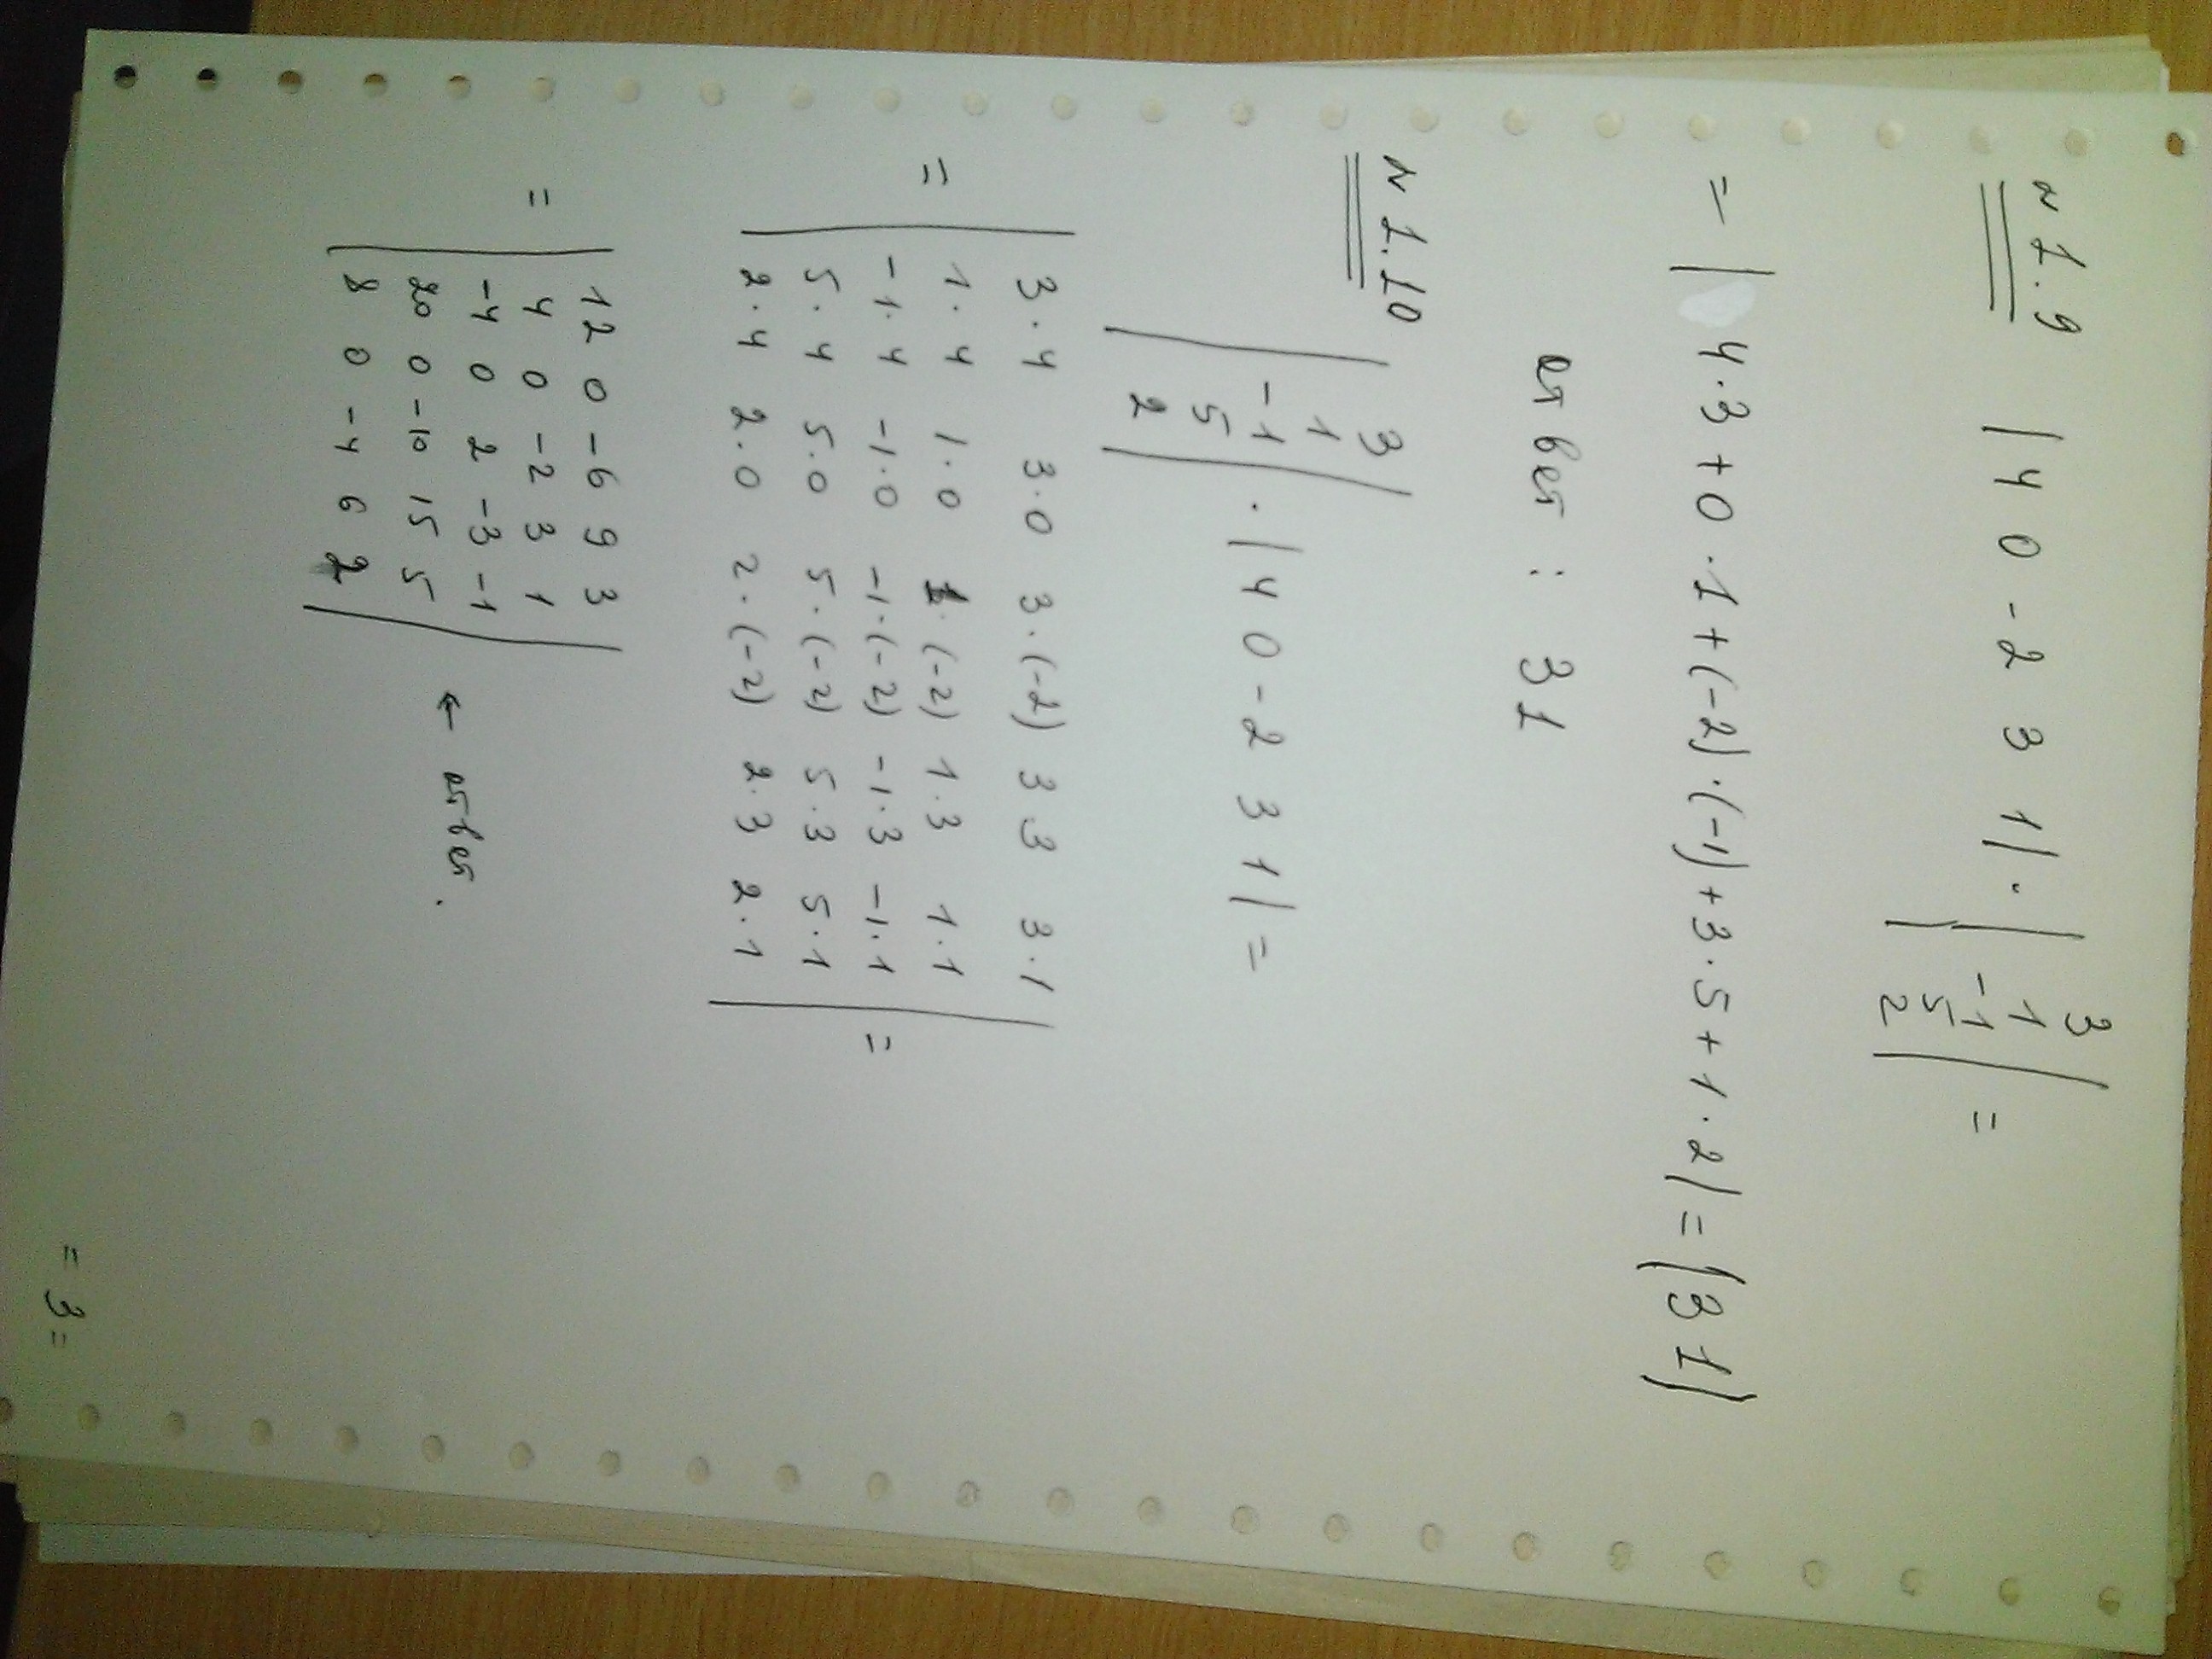 № 1.9
| 4 0 -2 3 1 | · | 3
1
-1
5
2 | =
= | 4·3 + 0·1 + (-2)·(-1) + 3·5 + 1·2 | = (31)
ответ : 31
№ 1.10
| 3
1
-1
5
2 | · | 4 0 -2 3 1 | =
= | 3·4 3·0 3·(-2) 3 3 3·1
1·4 1·0 1·(-2) 1·3 1·1
-1·4 -1·0 -1·(-2) -1·3 -1·1
5·4 5·0 5·(-2) 5·3 5·1
2·4 2·0 2·(-2) 2·3 2·1 | =
= | 12 0 -6 9 3
4 0 -2 3 1
-4 0 2 -3 -1
20 0 -10 15 5
8 0 -4 6 2 | ← ответ.
= 3 =